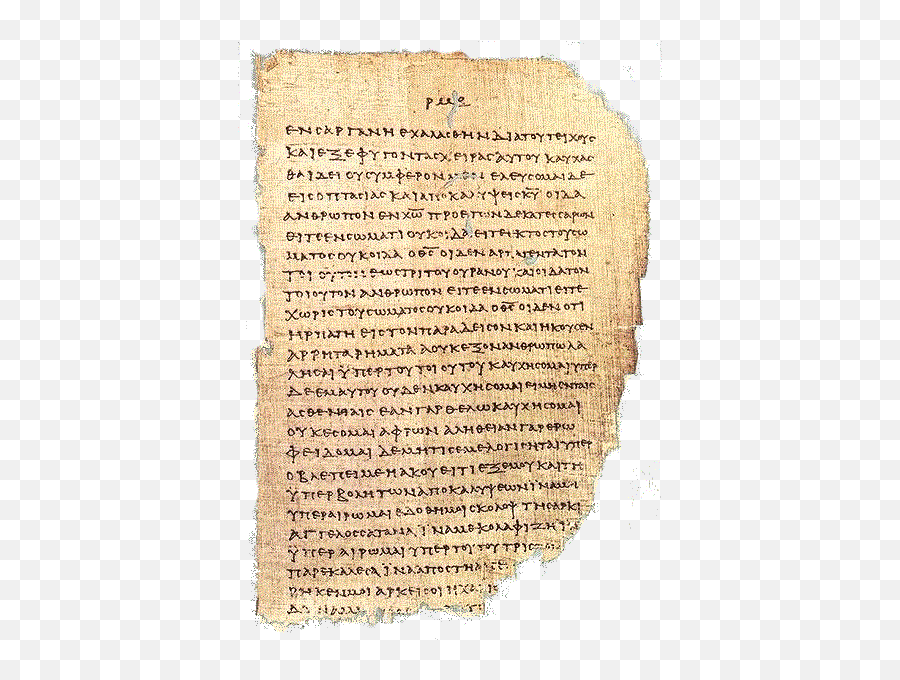 ρμε
ΕΝ ΣΑΡΓΑΝΗ ΕΧΑΛΑΣΘΗΝ ΔΙΑ ΤΟΥ ΤΕΙΧΟΥΣ
ΚΑΙ ΕΞΕΦΥΓΟΝ ΤΑΣ ΧΕΙΡΑΣ ΑΥΤΟΥ ΚΑΥΧΑΣ
ΘΑΙ ΔΕΙ ΟΥ ΣΥΜΦΕΡΟΝ ΜΕΝ ΕΛΕΥΣΟΜΑΙ ΔΕ
ΕΙΣ ΟΠΤΑΣΙΑΣ ΚΑΙ ΑΠΟΚΑΛΥΨΕΙΣ Κ̅Υ̅ ΟΙΔΑ
ΑΝΘΡΩΠΟΝ ΕΝ Χ̅Ω̅ ΠΡΟ ΕΤΩΝ ΔΕΚΑΤΕΣΣΑΡΩΝ
ΕΙΤΕ ΕΝ ΣΩΜΑΤΙ ΟΥΚ ΟΙΔΑ ΕΙΤΕ ΕΚΤΟΣ ΤΟΥ ΣΩ
ΜΑΤΟΣ ΟΥΚ ΟΙΔΑ Ο Θ̅Σ̅ ΟΙΔΕΝ ΑΡΠΑΓΕΝΤΑ ΤΟΝ
ΤΟΙ ΟΥΤΟΝ ΕΩΣ ΤΡΙΤΟΥ ΟΥΡΑΝΟΥ ΚΑΙ ΟΙΔΑ ΤΟΝ
ΤΟΙΟΥΤΟΝ ΑΝΘΡΩΠΟΝ ΕΙΤΕ ΕΝ ΣΩΜΑΤΙ ΕΙΤΕ
ΧΩΡΙΣ ΤΟΥ ΣΩΜΑΤΟΣ ΟΥΚ ΟΙΔΑ Ο Θ̅Σ̅ ΟΙΔΕΝ ΟΤΙ
ΗΡΠΑΓΗ ΕΙΣ ΤΟΝ ΠΑΡΑΔΕΙΣΟΝ ΚΑΙ ΗΚΟΥΣΕΝ
ΑΡΡΗΤΑ ΡΗΜΑΤΑ Α ΟΥΚ ΕΞΟΝ ΑΝΘΡΩΠΩ ΛΑ
ΛΗΣΑΙ ΫΠΕΡ ΤΟΥ ΤΟΙΟΥΤΟΥ ΚΑΥΧΗΣΟΜΑΙ ΫΠΕΡ
ΔΕ ΕΜΑΥΤΟΥ ΟΥΔΕΝ ΚΑΥΧΗΣΟΜΑΙ ΕΙ ΜΗ ΕΝ ΤΑΙΣ
ΑΣΘΕΝΕΙΑΙΣ ΕΑΝ ΓΑΡ ΘΕΛΩ ΚΑΥΧΗΣΟΜΑΙ
ΟΥΚ ΕΣΟΜΑΙ ΑΦΡΩΝ ΑΛΗΘΕΙΑΝ ΓΑΡ ΕΡΩ
ΦΕΙΔΟΜΑΙ ΔΕ ΜΗ ΤΙΣ ΕΜΕ ΛΟΓΙΣΗΤΑΙ ΫΠΕΡ
Ο ΒΛΕΠΕΙ ΜΕ Η ΑΚΟΥΕΙ ΤΙ ΕΞ ΕΜΟΥ ΚΑΙ ΤΗ
ΫΠΕΡΒΟΛΗ ΤΩΝ ΑΠΟΚΑΛΥΨΕΩΝ ΪΝΑ ΜΗ
ΥΠΕΡΑΙΡΩΜΑΙ ΕΔΟΘΗ ΜΟΙ ΣΚΟΛΟΨ ΤΗ ΣΑΡΚΙ
ΑΓΓΕΛΟΣ ΣΑΤΑΝΑ ΪΝΑ ΜΕ ΚΟΛΑΦΙΖΗ ΪΝΑ
ΫΠΕΡΑΙΡΩΜΑΙ ΥΠΕΡ ΤΟΥΤΟΥ ΤΡΙΣ
ΠΑΡΕΚΑΛΕΣΑ ΪΝΑ ΑΠΟΣΤΗ ΑΠ
ΡΗΚΕΝ ΜΟΙ ΑΡΚΕΙ ΣΟΙ Η ΧΑΡΙΣ